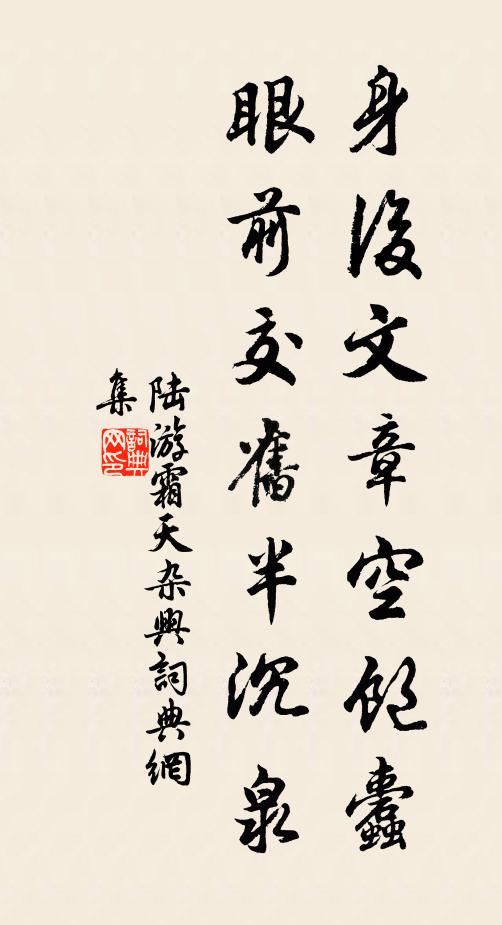 身後文章空飽蠹
眼前交舊半沉泉
陆游霜天杂興詞典網
集
詞典网印